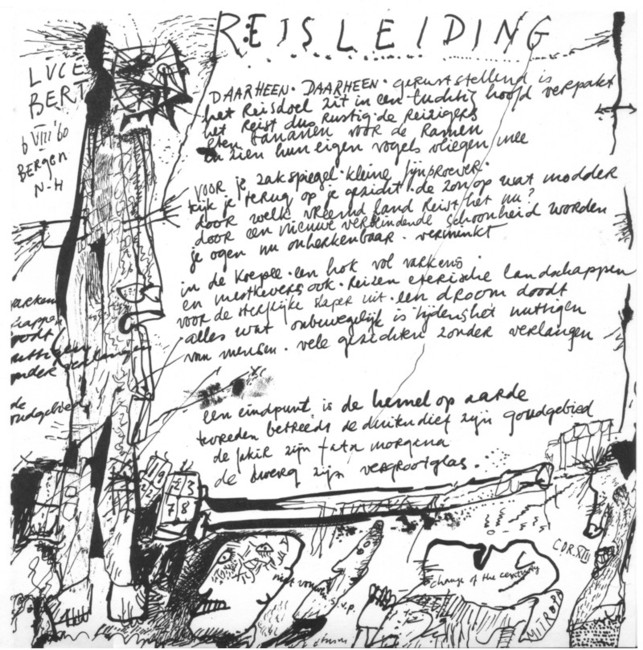 REISLEIDING
LUCE
BERT
6 VIII '60
Bergen
N-H
DAARHEEN. DAARHEEN. geruststellend is
het Reisdoel zit in een luchtig hoofd verpakt
het Reist dus Rustig. de Reizigers
eten bananen voor de Ramen
en zien hun eigen vogels vliegen mee
voor je, zakspiegel. kleine fijnproever.
kijk je terug op je gezicht. de zon op wat modder
door welk vreemd land Reist het nu?
door een nieuwe verblindende schoonheid worden
je ogen nu onherkenbaar. verminkt
in de Koepee. een hok vol varkens
en mestkevers ook. Reizen eterische landschappen
voor de sterfelijke slaper uit. een droom doodt
alles wat onbewegelijk is tijdens het nuttigen
van mensen. vele gezichten zonder verlangen
een eindpunt is de hemel op aarde
tevreden betreedt de duitendief zijn goudgebied
de fakir zijn fata morgana
de dwerg zijn vergrootglas.
varkens
happen
oodt
nuttigen
onder verlangen
de
oudgebied
7 8
niet
s.v.p.
change of the century
CORSO
MITROPA